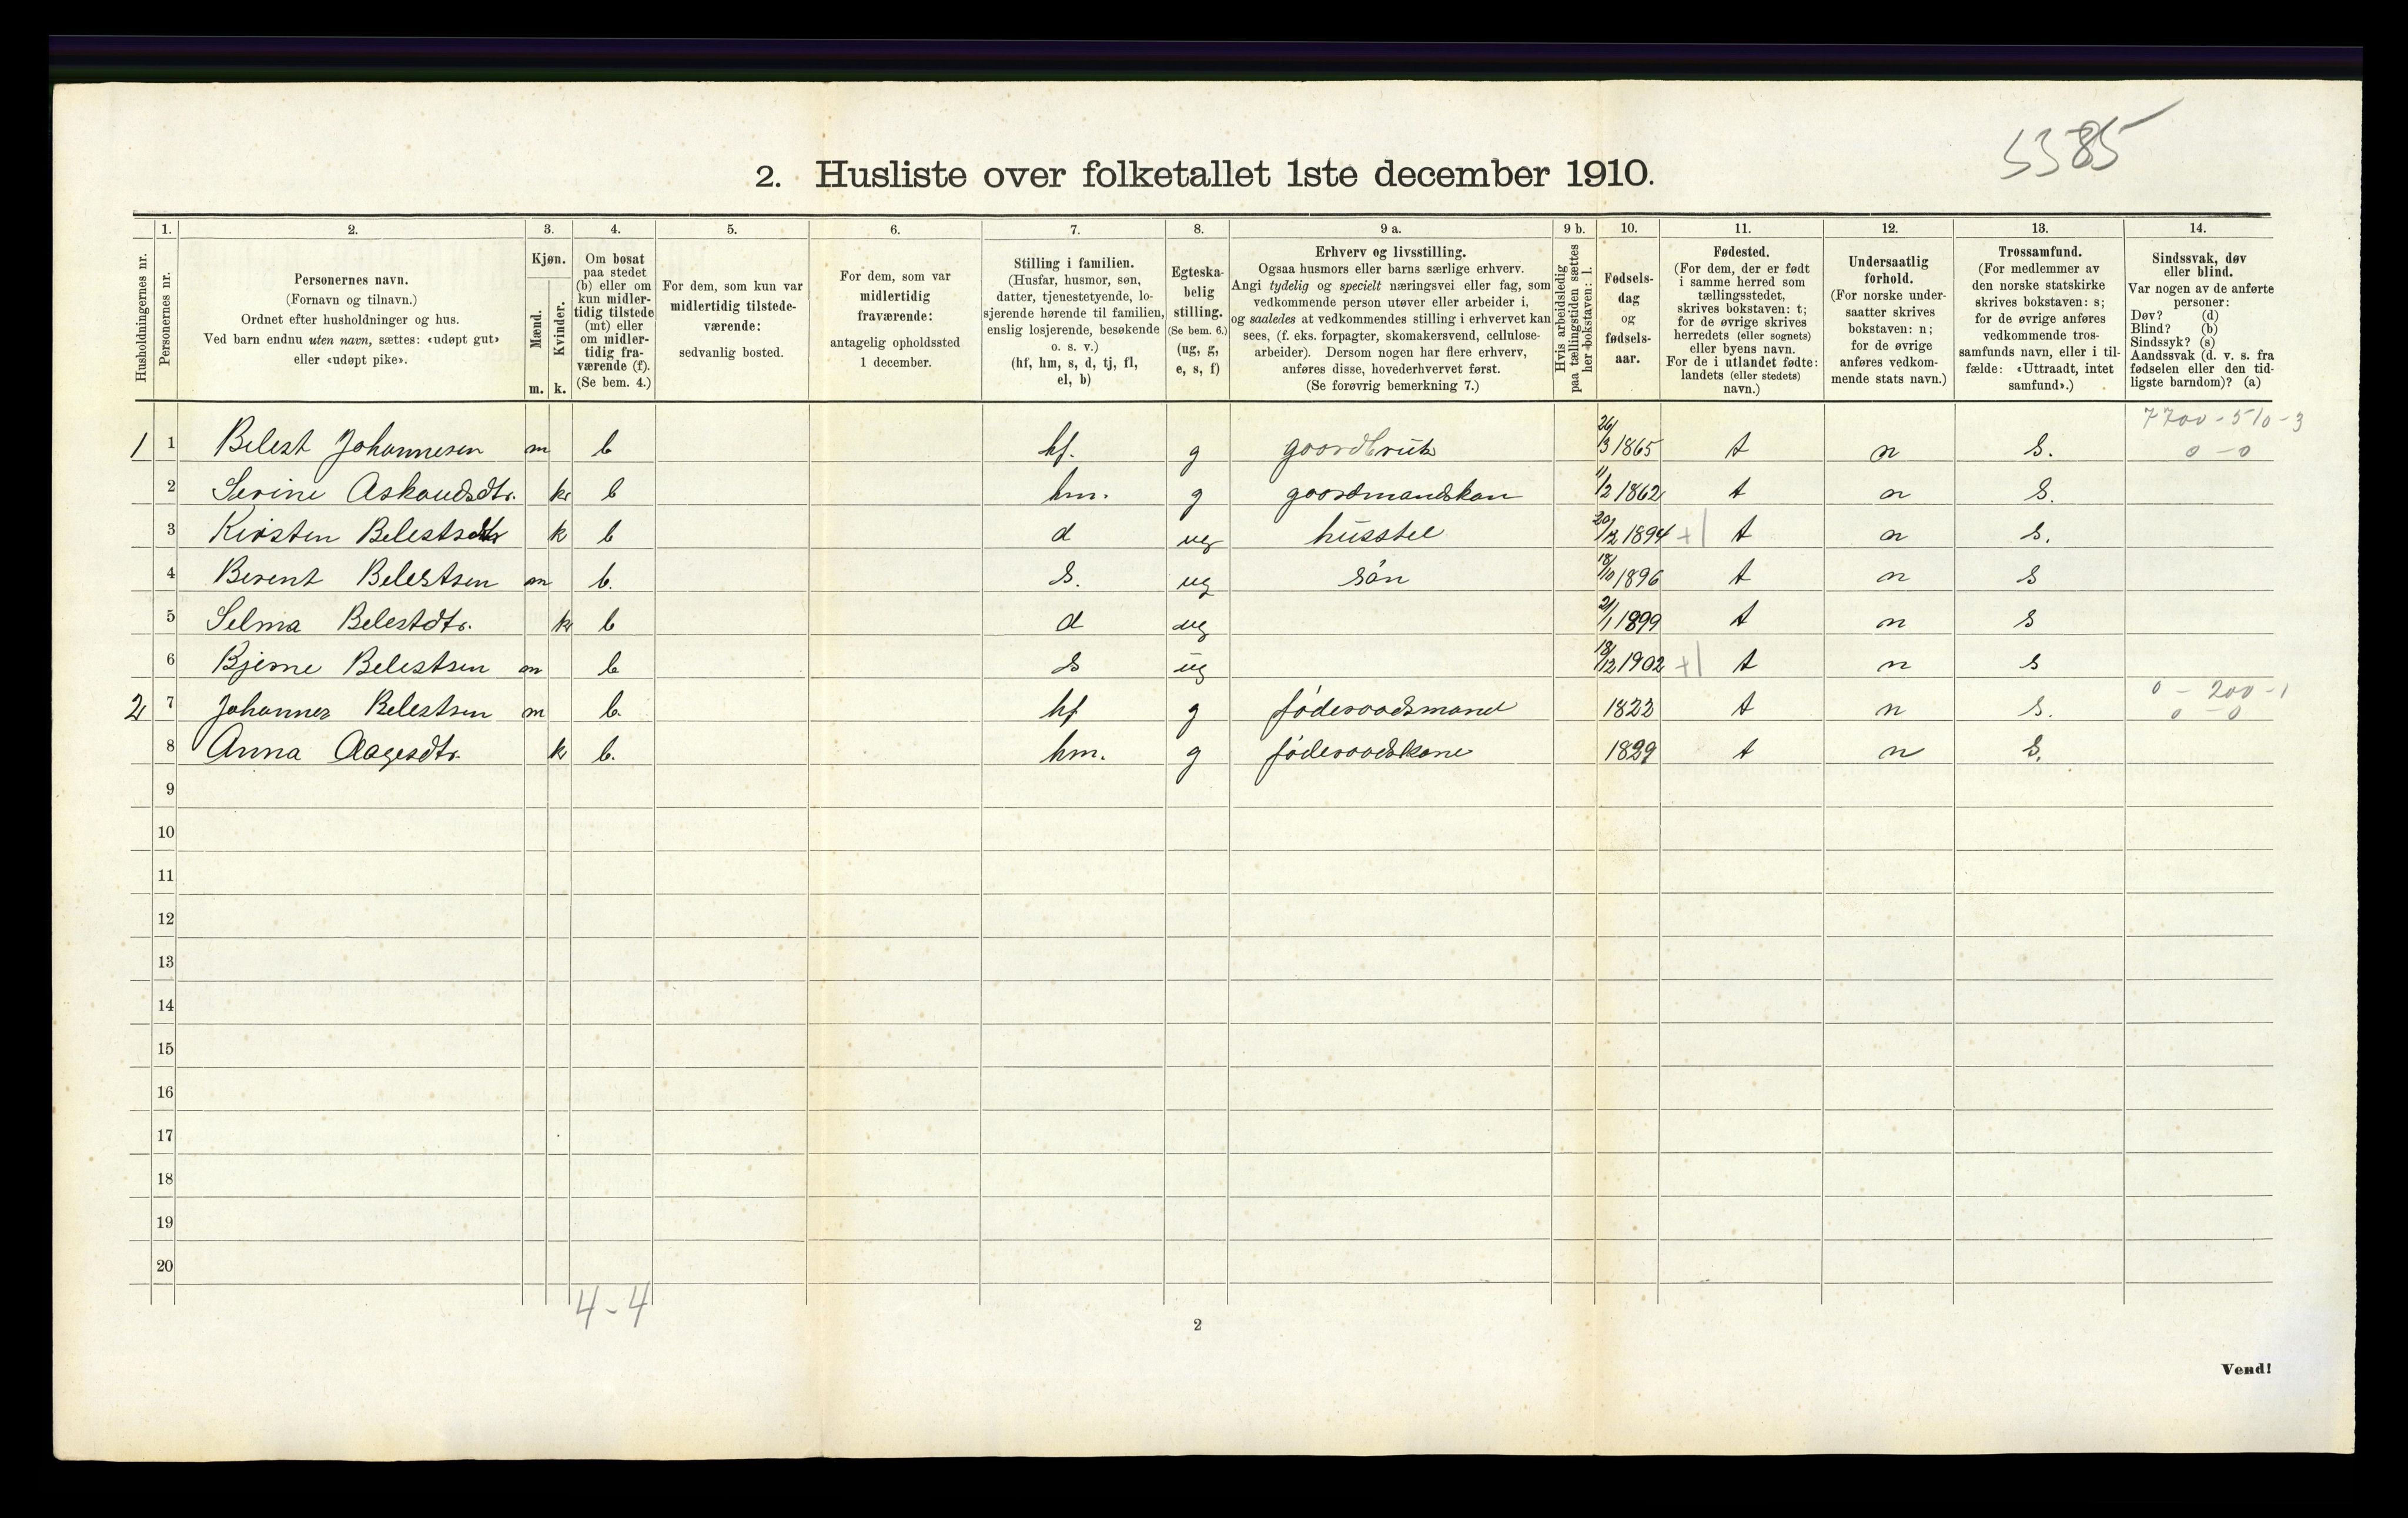 5385
2. Husliste over folketallet 1ste december 1910.
Husholdningernes nr.
1. 2. 3. 4. 5. 6. 7. 8. 9 a. 9 b. 10. 11. 12. 13. 14.
Personernes nr.
Personernes navn.
(Fornavn og tilnavn.)
Ordnet efter husholdninger og hus.
Ved barn endnu uten navn, sættes: «udøpt gut»
eller «udøpt pike».
Kjøn.
Mænd.
m.
Kvinder.
k.
Om bosat
paa stedet
(b) eller om
kun midler-
tidig tilstede
(mt) eller
om midler-
tidig fra-
værende (f).
(Se bem. 4.)
For dem, som kun var
midlertidig tilstede-
værende:
sedvanlig bosted.
For dem, som var
midlertidig
fraværende:
antagelig opholdssted
1 december.
Stilling i familien.
(Husfar, husmor, søn,
datter, tjenestetyende, lo-
sjerende hørende til familien,
enslig losjerende, besøkende
o. s. v.)
(hf, hm, s, d, tj, fl,
el, b)
Egteska-
belig
stilling.
(Se bem. 6.)
(ug, g,
e, s, f)
Erhverv og livsstilling.
Ogsaa husmors eller barns særlige erhverv.
Angi tydelig og specielt næringsvei eller fag, som
vedkommende person utøver eller arbeider i,
og saaledes at vedkommendes stilling i erhvervet kan
sees, (f. eks. forpagter, skomakersvend, cellulose-
arbeider). Dersom nogen har flere erhverv,
anføres disse, hovederhvervet først.
(Se forøvrig bemerkning 7.)
Hvis arbeidsledig
paa tællingstiden sættes
her bokstaven: l.
Fødsels-
dag
og
fødsels-
aar.
Fødested.
(For dem, der er født
i samme herred som
tællingsstedet,
skrives bokstaven: t;
for de øvrige skrives
herredets (eller sognets)
eller byens navn.
For de i utlandet fødte:
landets (eller stedets)
navn.)
Undersaatlig
forhold.
(For norske under-
saatter skrives
bokstaven: n;
for de øvrige
anføres vedkom-
mende stats navn.)
Trossamfund.
(For medlemmer av
den norske statskirke
skrives bokstaven: s;
for de øvrige anføres
vedkommende tros-
samfunds navn, eller i til-
fælde: «Uttraadt, intet
samfund».)
Sindssvak, døv
eller blind.
Var nogen av de anførte
personer:
Døv? (d)
Blind? (b)
Sindssyk? (s)
Aandssvak (d. v. s. fra
fødselen eller den tid-
ligste barndom)? (a)
7700-510-3
1 1 Belest Johannesen m b hf. g goordbruk 26/3 1865 t n s. 0-0
2 Serine Askoudsdtr. k b hm. g goordmandskon 11/2 1862 t n s.
3 Kirsten Belestsdtr k b d ug husstel 20/12 1894 + t n s.
4 Berent Belestsen m b. s. ug sön 18/10 1896 t n s
5 Selma Belestdtr. k b d ug 21/1 1899 t n s
6 Bjerne Belestsen m b s ug 18/12 1902 + t n s
0-200-1
2 7 Johannes Belestsen m b. hf g föderoodsmand 1822 t n s. 0-0
8 Anna Aagesdtr. k b. hm. g föderoodskone 1829 t n s.
9
10
11
12
13
14
15
16
17
18
19
20
4-4
2
Vend!